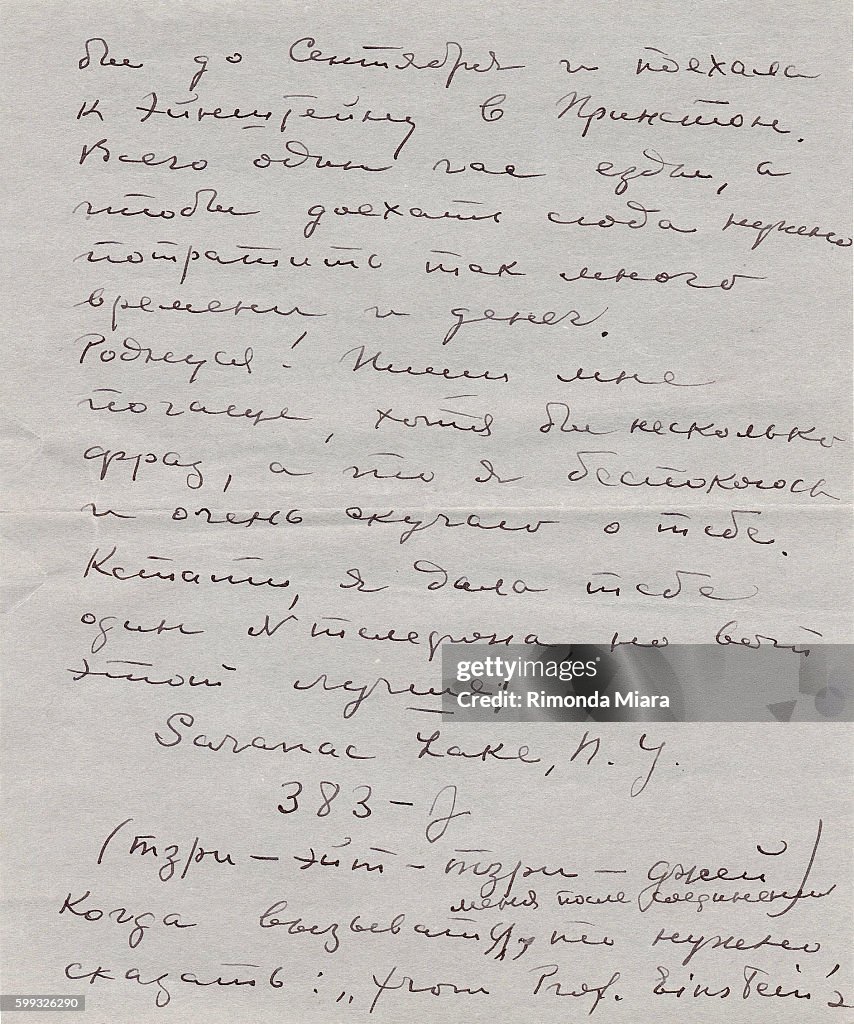 бы до Сентября и поехала
к Эйнштейну в Принстон.
Всего один час езды, а
чтобы доехать сюда нужно
потратить так много
времени и денег.
Роднуся! Пиши мне
почаще, хотя бы несколько
фраз, а то я беспокоюсь
и очень скучаю о тебе.
Кстати, я дала тебе
один N телефона, но вот
этот лучше:
gettyimages®
Rimonda Miara
Saranac Lake, N. Y.
383-J
(тзри – эйт – тзри – джей)
меня после соединения
Когда вызывать, то нужно
сказать: „from Prof. Einstein's
599326290